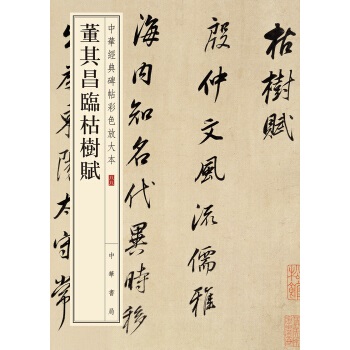 枯樹賦
殷仲文風流儒雅
海内知名代異時移
出為東陽太守常
中華經典碑帖彩色放大本
董其昌臨枯樹賦
中華書局